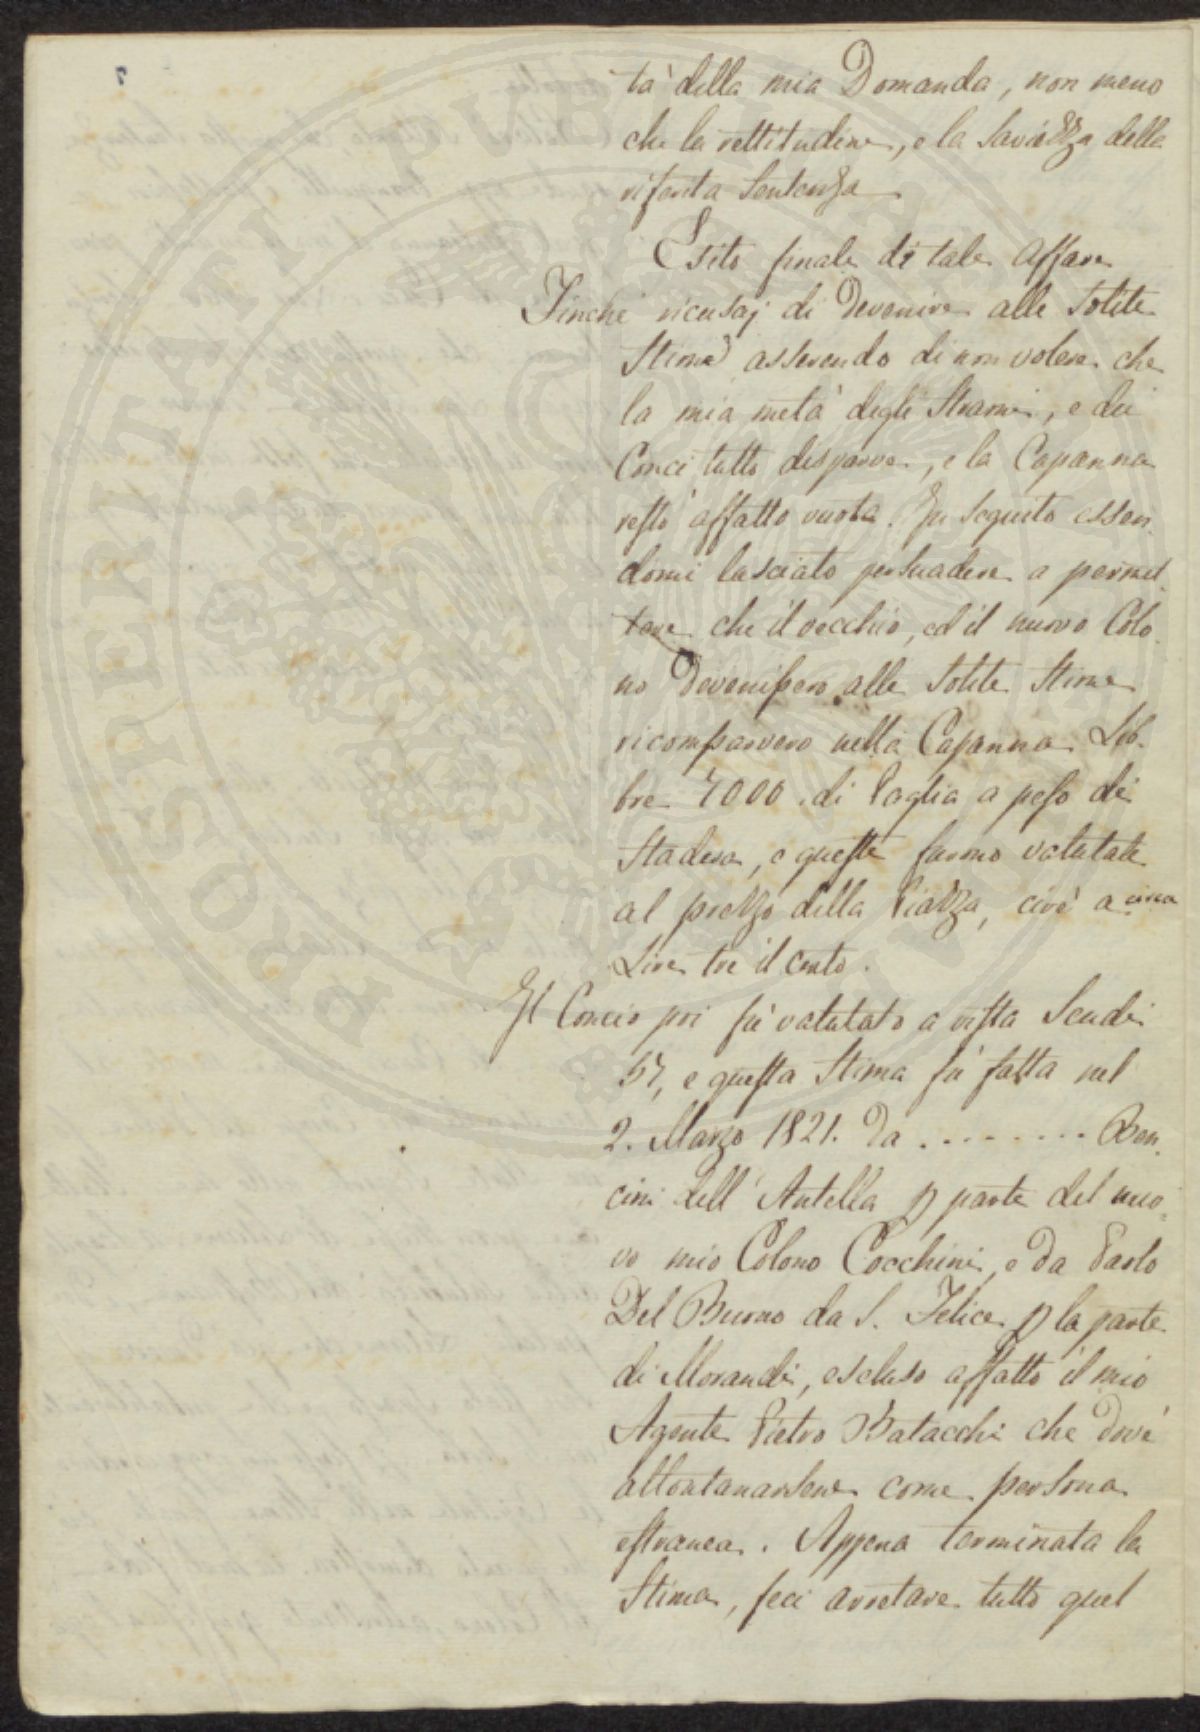 tà della mia Domanda, non meno
che la rettitudine, e la Saviezza della
riferita Sentenza
Esito finale di tale Affare
Finchè ricusaj di Devenire alle Solite
Stime asserendo di non volere che
la mia metà degli Strami, e dei
Conci tutto disparve, e la Capanna
restò affatto vuota. In seguito essen-
domi lasciato persuadere a permet-
tere che il vecchio, ed il nuovo Colo-
no Devenissero alle Solite Stime
ricomparvero nella Capanna Lib-
bre 4000. di Paglia a peso di
Stadera, e queste furono valutate
al prezzo della Piazza, cioè a circa
Lire tre il cento.
Il Concio poi fù valutato a vista Scudi
57, e questa Stima fù fatta nel
2. Marzo 1821. Da ......... Ben-
cini dell'Antella p parte del nuo-
vo mio Colono Cocchini, e da Paolo
Del Buono da S. Felice p la parte
di Morandi, escluso affatto il mio
Agente Pietro Batacchi che Dovè
allontanarsene come persona
estranea. Appena terminata la
Stima, feci arretare tutto quel
PROSPERITATI PUBLICAE
7